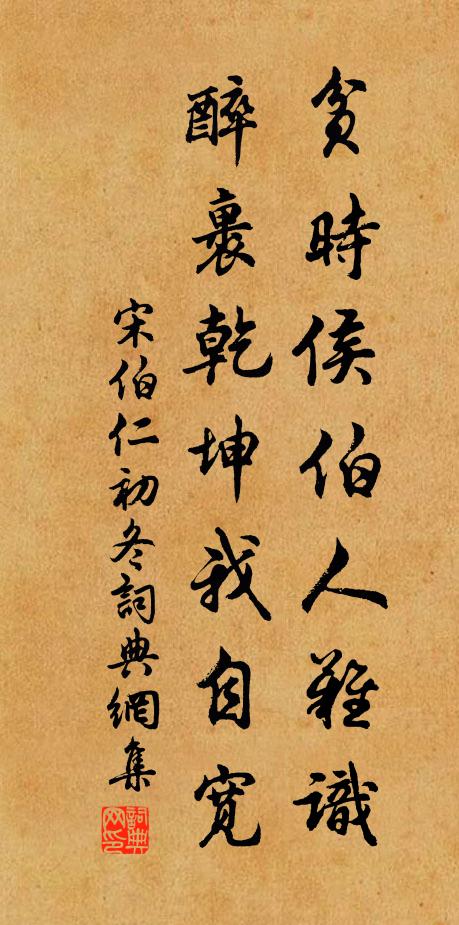 貧時侯伯人難識
醉裏乾坤我自寬
宋伯仁初冬詞典網集
詞典网印